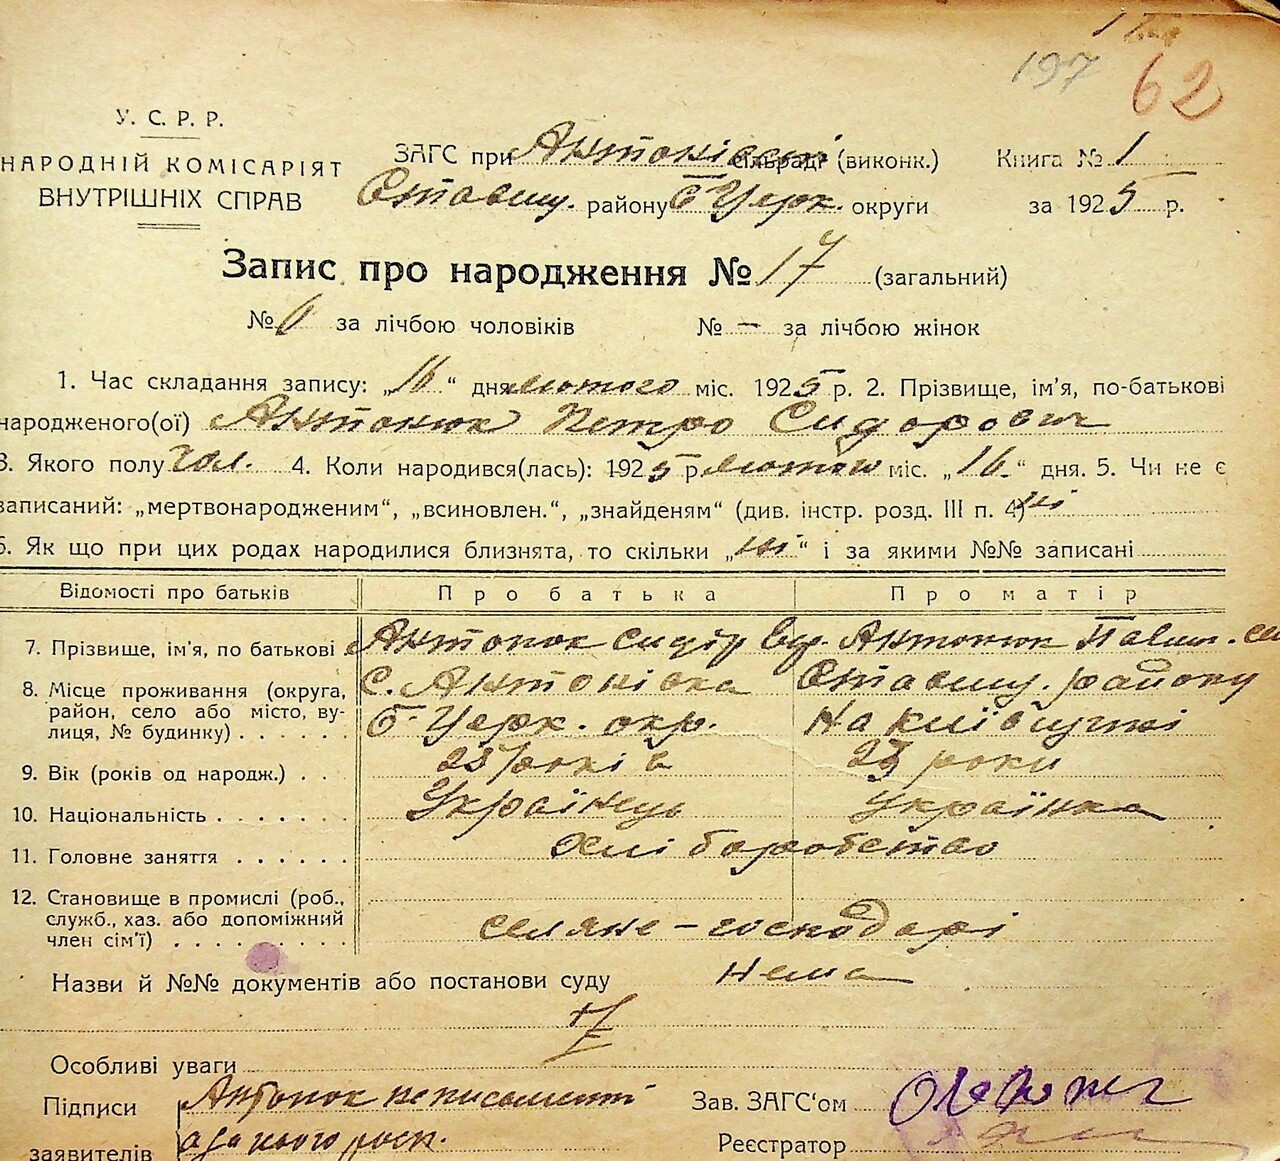 197 62
У. С. Р. Р.
НАРОДНІЙ КОМІСАРІЯТ
ВНУТРІШНІХ СПРАВ
ЗАГС при Антонівській сільраді (виконк.) Книга № 1
Ставищ. району Б Церк. округи за 1925 р.
Запис про народження № 17 (загальний)
№ 6 за лічбою чоловіків № — за лічбою жінок
1. Час складання запису: „16“ дня лютого міс. 1925 р. 2. Прізвище, ім'я, по-батькові
народженого(ої) Антонюк Петро Сидорович
3. Якого полу чол. 4. Коли народився(лась): 1925 р лютого міс. „16.“ дня. 5. Чи не є
записаний: „мертвонародженим“, „всиновлен.“, „знайденям“ (див. інстр. розд. III п. 4) ні
6. Як що при цих родах народилися близнята, то скільки „ні“ і за якими №№ записані
Відомості про батьків Про батька Про матір
7. Прізвище, ім'я, по батькові Антонюк Сидір Антонюк
8. Місце проживання (округа, с. Антонівка Ставищ. району
район, село або місто, ву-
лиця, № будинку) б-Церк. окр. на Київщині
9. Вік (років од народж.) років роки
10. Національність Українець Українка
11. Головне заняття Хліборобство
12. Становище в промислі (роб.,
служб., хаз. або допоміжний
член сім'ї) селяне – господарі
Назви й №№ документів або постанови суду Нема
Особливі уваги
Підписи Антонюк неписьменні Зав. ЗАГС'ом
заявителів Реєстратор